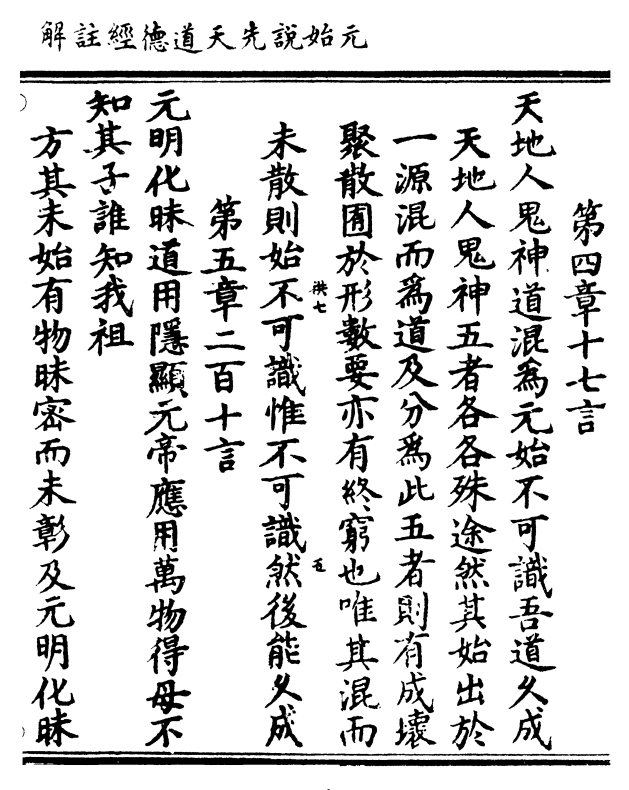 元始說先天道德經註解
第四章十七言
天地人鬼神道混爲元始不可識吾道乆成
天地人鬼神五者各各殊途然其始出於
一源混而爲道及分爲此五者則有成壞
聚散囿於形數要亦有終窮也唯其混而
洪七
五
未散則始不可識惟不可識然後能乆成
第五章二百十言
元明化昧道用隱顯元帝應用萬物得母不
知其子誰知我祖
方其未始有物昧宻而未彰及元明化昧